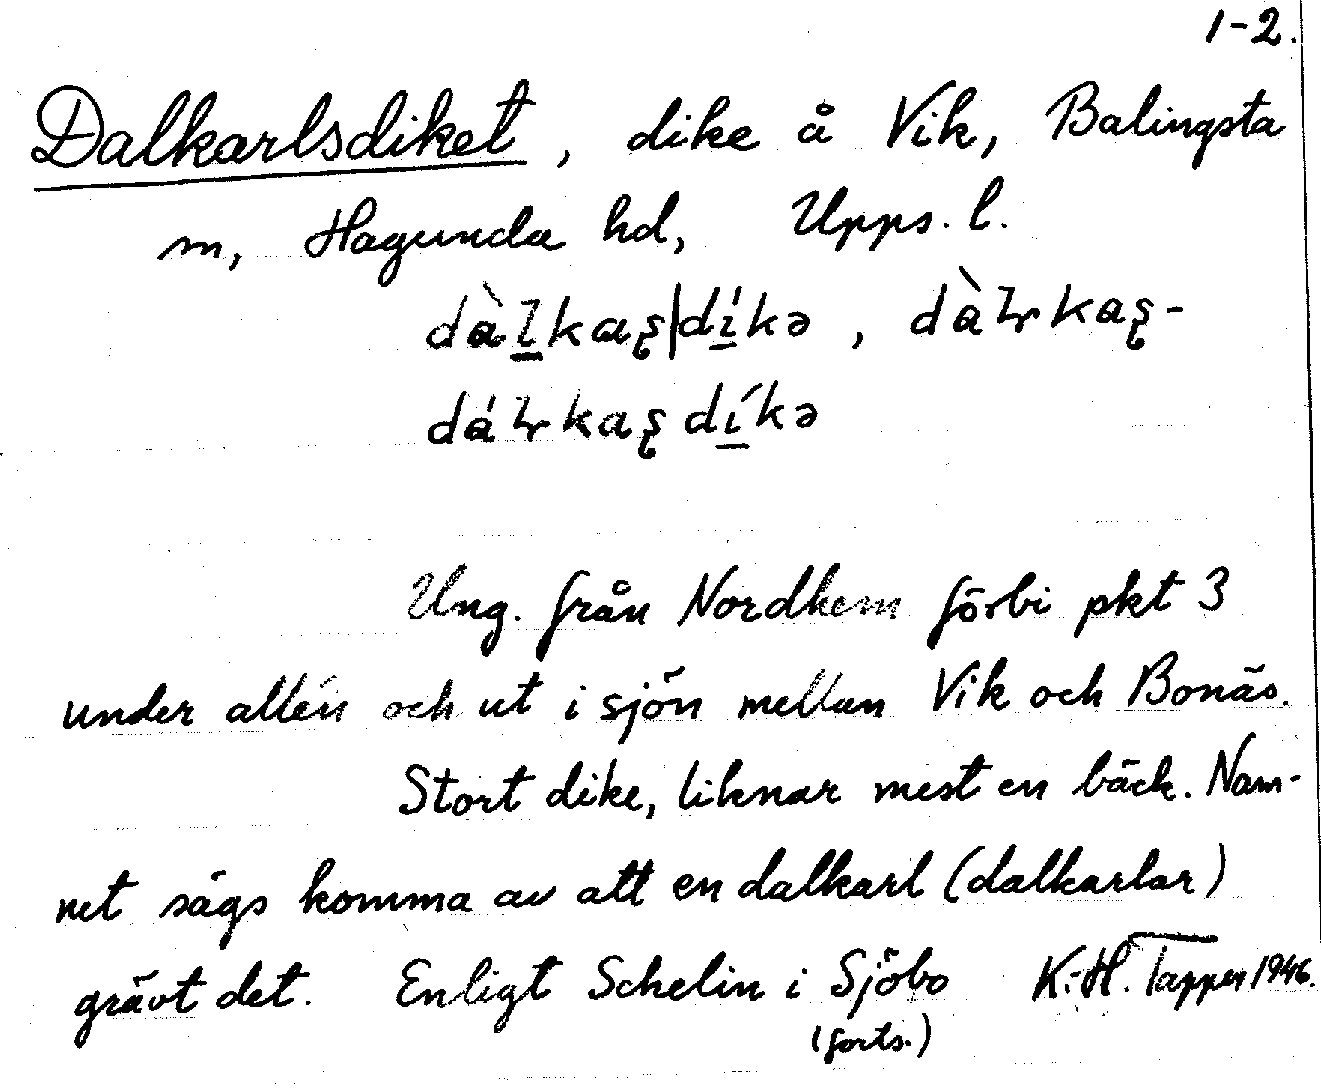 1-2.
Dalkarlsdiket, dike å Vik, Balingsta
sn, Hagunda hd, Upps. l.
dàl̲kaʂ|dí̲kə, dàɽkaʂ-
dáɽkaʂdí̲kə
Ung. från Nordhem förbi pkt 3
under allén och ut i sjön mellan Vik och Bonäs.
Stort dike, liknar mest en bäck. Nam-
net sägs komma av att en dalkarl (dalkarlar)
grävt det. Enligt Schelin i Sjöbo K.-H. Tapper 1946.
(forts.)